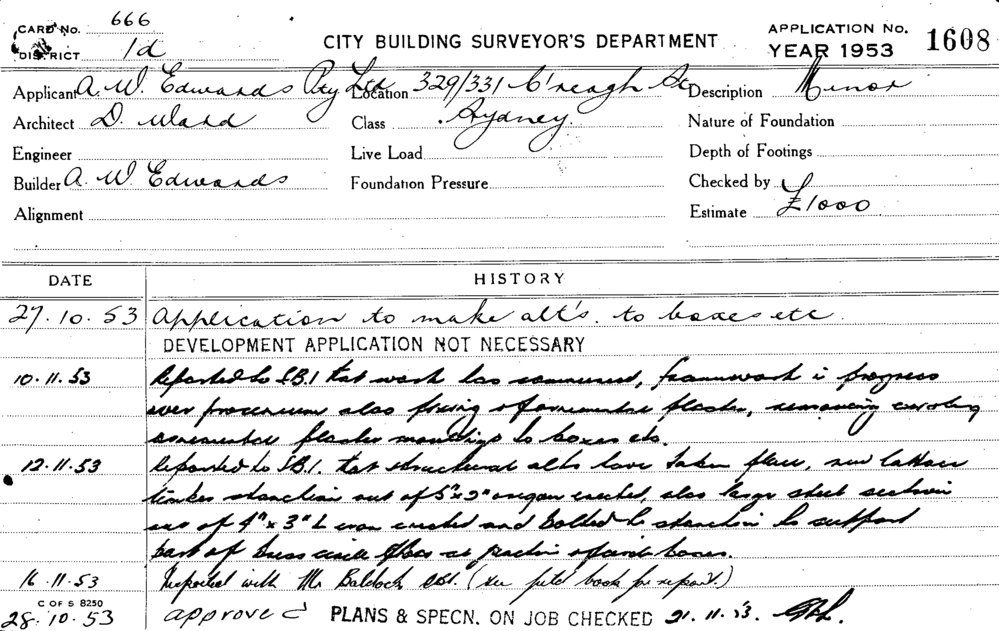 CARD No. 666
DISTRICT 1d
CITY BUILDING SURVEYOR'S DEPARTMENT
APPLICATION No. 1608
YEAR 1953
Applicant A. W. Edwards Pty Ltd Location 329/331 C'reagh St Description Minor
Architect D. Ward Class Sydney. Nature of Foundation
Engineer Live Load Depth of Footings
Builder A. W. Edwards Foundation Pressure Checked by
Alignment Estimate £1000
DATE HISTORY
27.10.53 Application to make alt's. to boxes etc.
DEVELOPMENT APPLICATION NOT NECESSARY
10.11.53 Reported to S.B.I. that work has commenced, framework in progress
over proscenium also fixing of ornamental plaster, removing existing
ornamental plaster mouldings to boxes etc.
12.11.53 Reported to S.B.I. that structural alts have taken place, new
timber stanchion out of 5"x2" oregon erected, also large steel section
out of 4"x3" L iron erected and bolted to stanchion to support
part of dress circle floor at of boxes.
16.11.53 Inspected with Mr Baldock SBI. (see field book for report.)
C OF S 8250
28.10.53 approved PLANS & SPECN. ON JOB CHECKED 21.11.53.